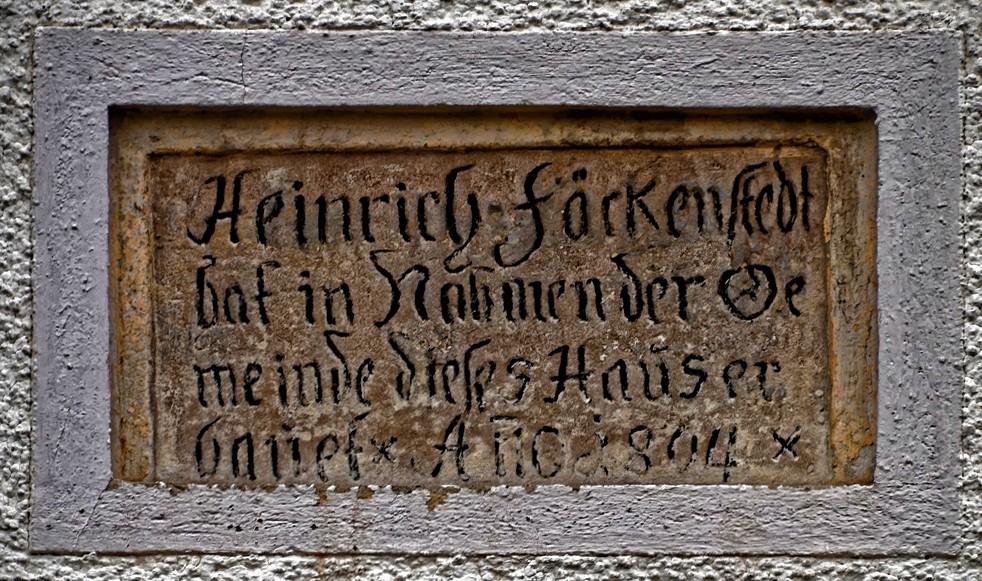 Heinrich Föckenstedt
hat in Nahmen der Ge
meinde dieses Haus er
bauet x Año 1804 x